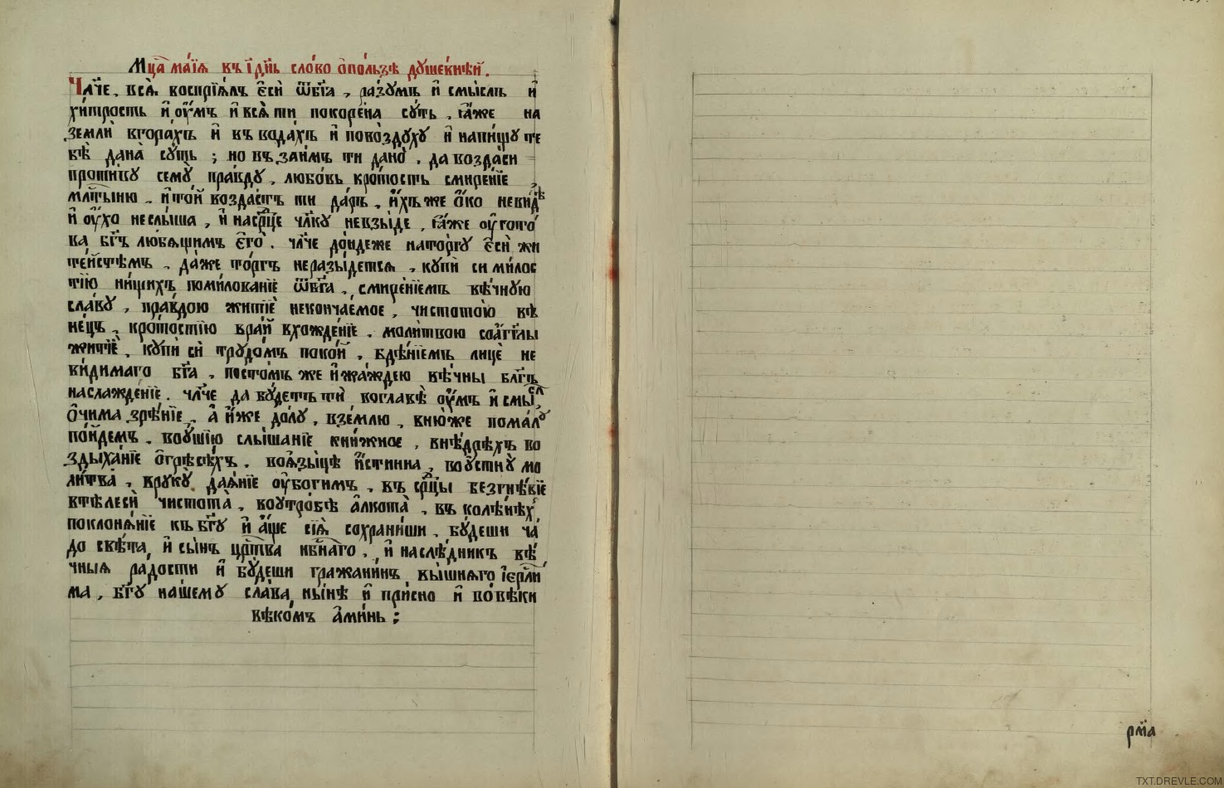 Мц҃а маїѧ въ і҃ дн҃ь слово ѻпользѣ душевнѣй.
Чл҃че, всѧ воспрїѧлъ є҆сѝ ѿбг҃а, разумъ и҆ смыслъ и҆
хитрость и҆ оу҆мъ и҆ всѧ ти покорена суть, ꙗ҆же на
землѝ вгорахъ и҆ въ водахъ и҆ повоздꙋхꙋ и҆ напищꙋ те
бѣ дана̀ сꙋть; но въ заимъ ти дано̀, да воздаси
противꙋ семꙋ̀ правдꙋ, любовь кротость смиренїе
млт҃ыню, и҆ той воздастъ ти даръ, и҆хъже ѻ҆ко невидѣ
и҆ оу҆хо неслыша, и҆ насрд҃це чл҃кꙋ невзыде, ꙗ҆же оу҆гото
ва бг҃ъ любѧщимъ є҆го̀. чл҃че дондеже наторгꙋ є҆сѝ жи
тейстѣмъ, даже торгъ неразыдетсѧ, кꙋпи си милос
тїю нищихъ помилованїе ѿбг҃а, смиренїемъ вѣчнꙋю
славꙋ, правдою житїе нескончаемое, чистотою вѣ
нецъ, кротостїю врай вхожденїе, молитвою соа҆гг҃лы
житїе, кꙋпѝ сѝ трꙋдомъ покой, бдѣнїемъ лице не
видимаго бг҃а, постомъ же и҆ жаждею вѣчны благъ
наслажденїе. чл҃че да бꙋдетъ ти воглавѣ оу҆мъ и҆ смысл
ѻ҆чима зрѣнїе, а҆ и҆же долꙋ, вземлю, внюже помалꙋ
пойдемъ, воꙋшїю слышанїе книжное, внѣдрѣхъ во
здыханїе ѻ҆грѣсѣхъ, воѧзыцѣ и҆стинна, воꙋстнꙋ мо
литва, врꙋкꙋ даѧнїе оу҆богимъ, въ срд҃цы безгнѣвїе
втѣлесѝ чистота̀, воꙋтробѣ а҆лкота̀, въ колѣнѣх
поклонѧнїе къ бг҃ꙋ и҆ а҆ще сїѧ̀ сохраниши, бꙋдеши ча
до свѣта, и҆ сынъ црт҃ва нб҃наго, и҆ наслѣдникъ вѣ
чныѧ радости и҆ бꙋдеши гражанинъ вышнѧго і҆ерл҃и
ма, бг҃ꙋ нашемꙋ слава нынѣ и҆ присно и҆ вовѣки
вѣкомъ а҆минь;
рм҃а
TXT.DREVLE.COM